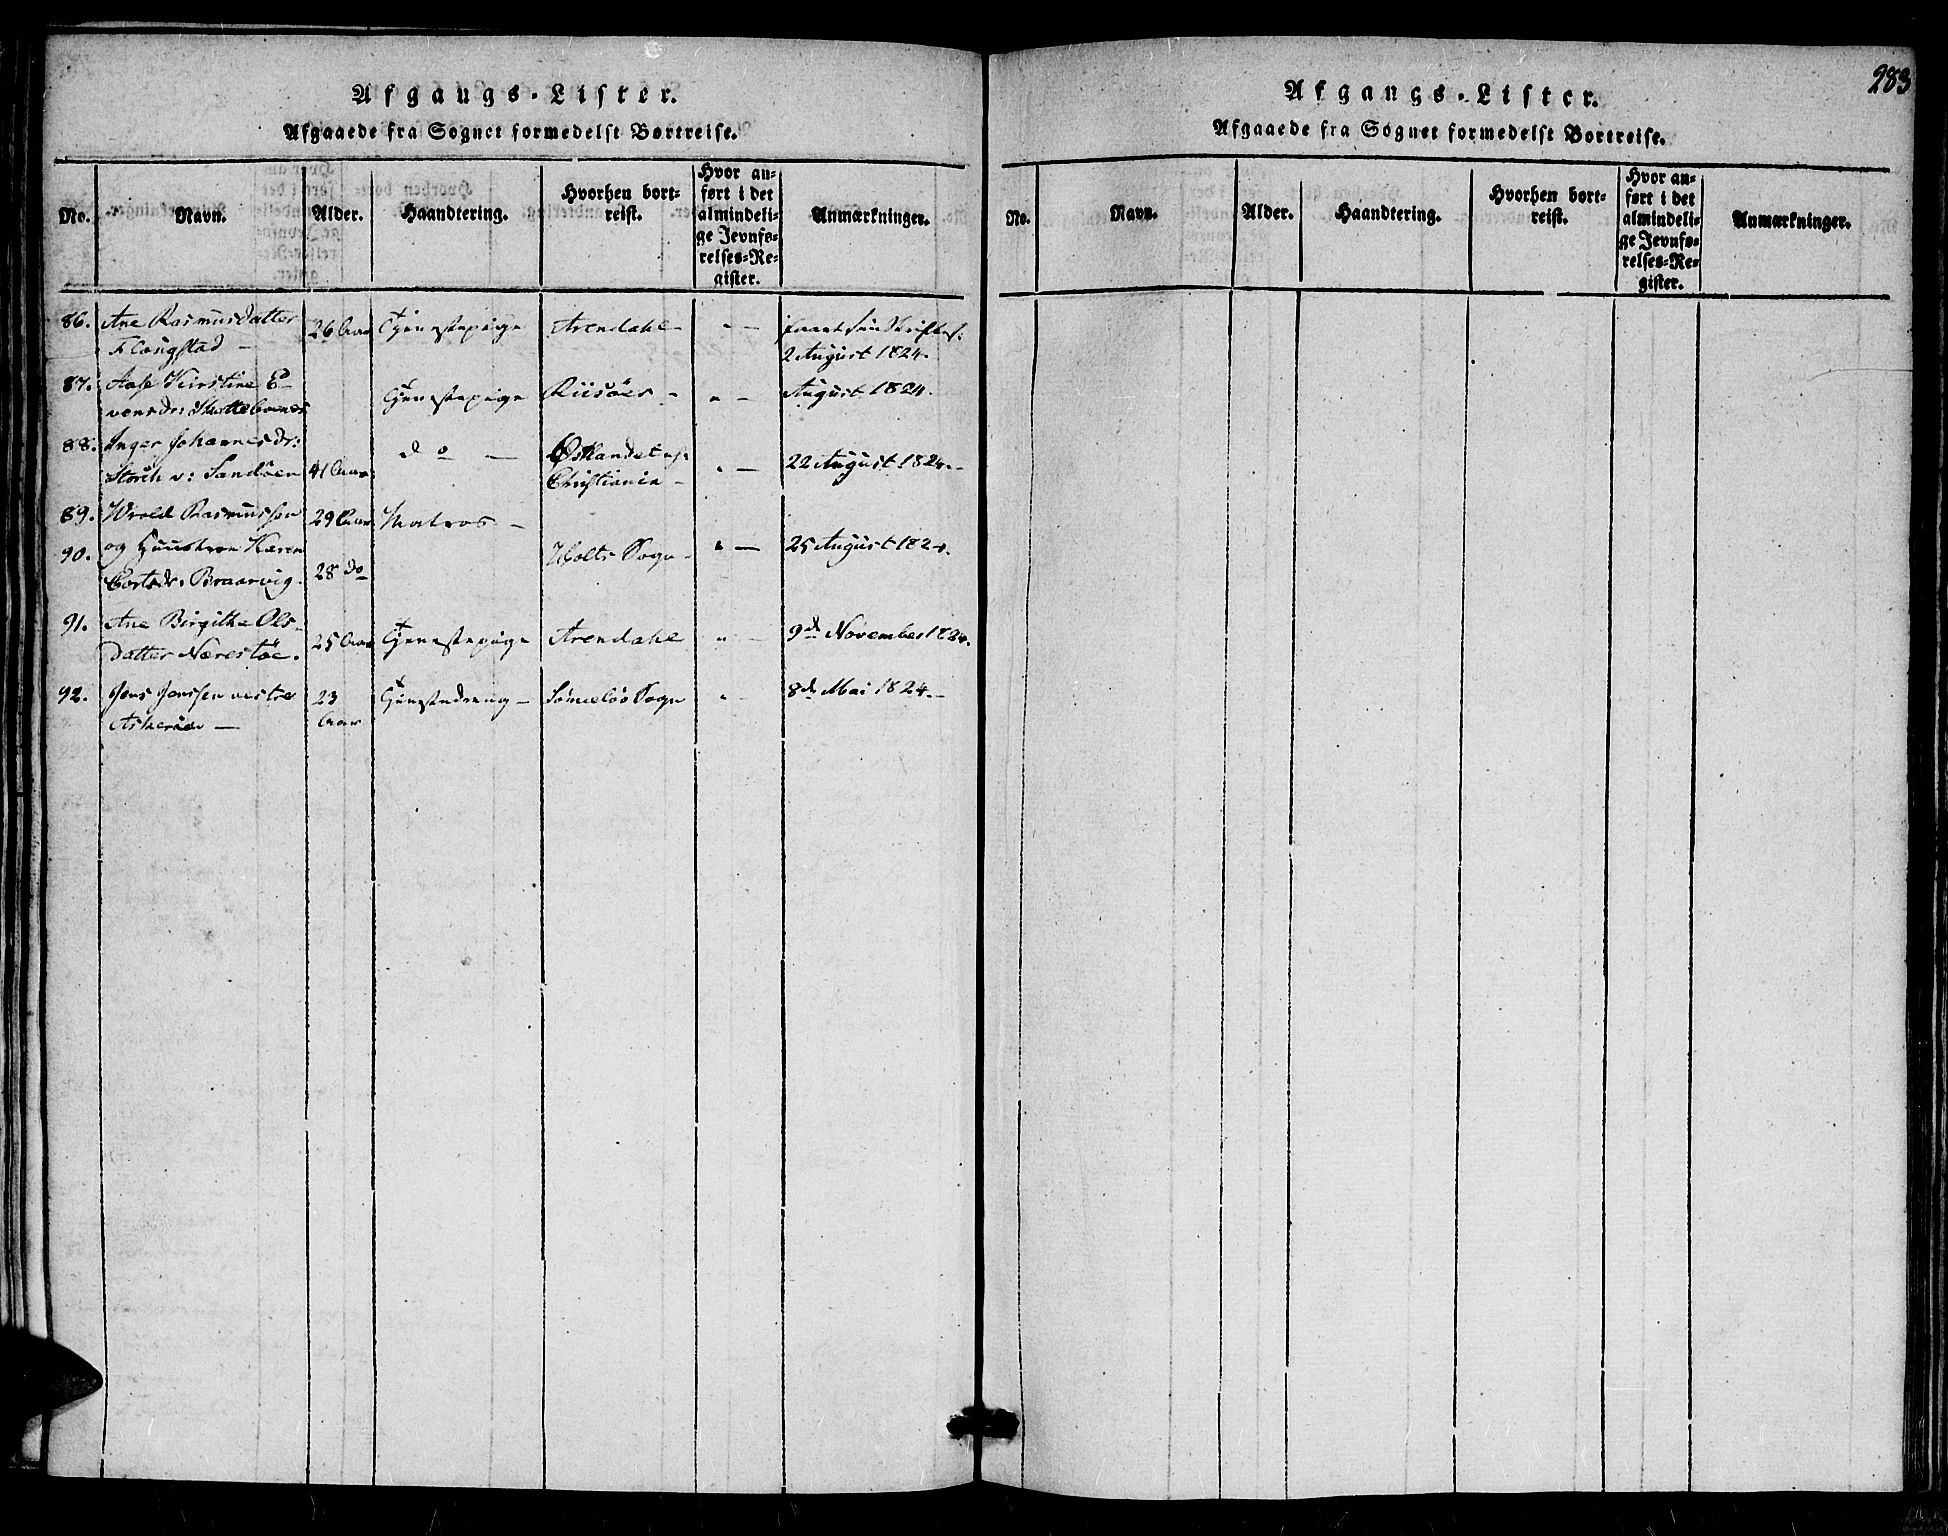 Afgangs-Lister.
Afgaaede fra Sognet formedelst Bortreise.
No.
Navn.
Alder.
Haandtering.
Hvorhen bort-
reist.
Hvor an-
ført i det
almindeli-
ge Jevnfø-
relses-Re-
gister.
Anmærkninger.
86. Ane Rasmusdatter 26 Aar Tjenestepige Arendahl - " -
Flougstad - 2 August 1824.
87. Aase Kirstine E-
vensdr: Tjenestepige Riisøer - " - August 1824.
88. Inger Johannesdr: do - Østlandet
Storch v: Sandøen 41 Aar Christiania - " - 22 August 1824.
89. Wrold Rasmussen 29 Aar Matros -
90. og Huustroe Karen Holts Sogn - " - 25 August 1824.
Braarvig. 28 do
91. Ane Birgithe Ols-
datter Nærestøe. 25 Aar Tjenestepige Arendahl " - 9de November 1824.
92. Jens Jenssen vestre 23 Tjenestedreng - Sønneløv Sogn " - 8de Mai 1824.
Askerøen - Aar
283
Afgangs-Lister.
Afgaaede fra Sognet formedelst Bortreise.
No.
Navn.
Alder.
Haandtering.
Hvorhen bort-
reist.
Hvor an-
ført i det
almindeli-
ge Jevnfø-
relses-Re-
gister.
Anmærkninger.